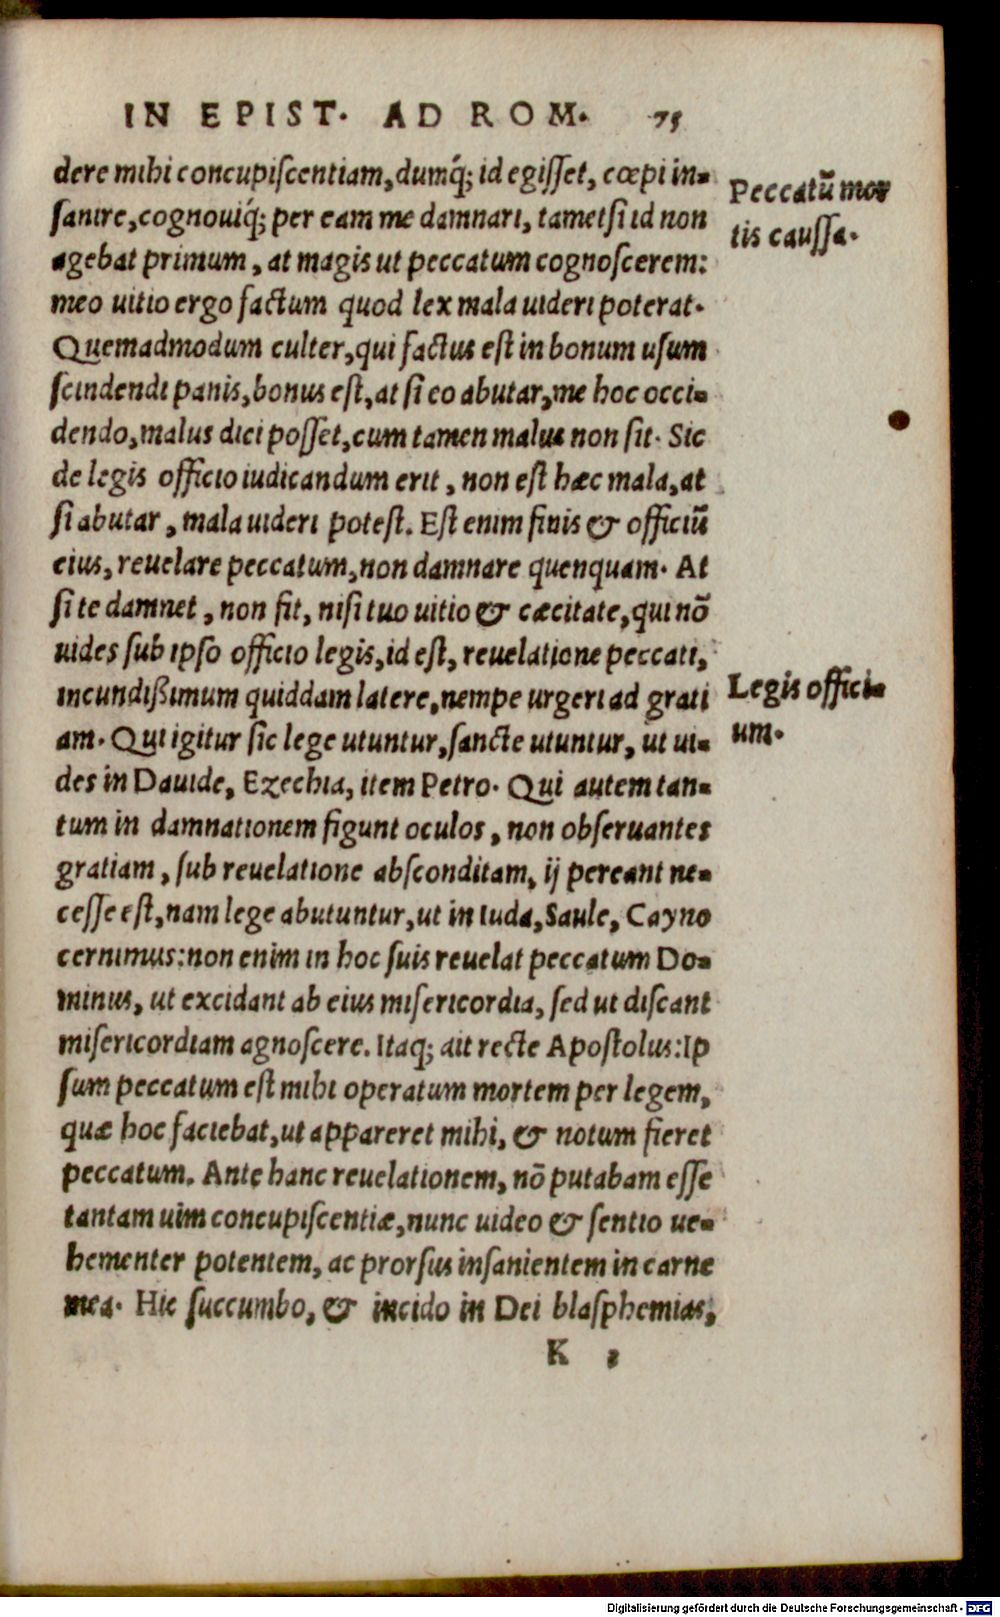 IN EPIST. AD ROM. 75
dere mihi concupiſcentiam, dumq́; id egiſſet, cœpi in-
ſanire, cognouiq́; per eam me damnari, tametſi id non
agebat primum, at magis ut peccatum cognoſcerem:
meo uitio ergo factum quod lex mala uideri poterat.
Quemadmodum culter, qui factus eſt in bonum uſum
ſcindendi panis, bonus eſt, at ſi eo abutar, me hoc occi-
dendo, malus dici poſſet, cum tamen malus non ſit. Sic
de legis officio iudicandum erit, non eſt hæc mala, at
ſi abutar, mala uideri poteſt. Eſt enim finis & officiũ
eius, reuelare peccatum, non damnare quenquam. At
ſi te damnet, non fit, niſi tuo uitio & cæcitate, qui nõ
uides ſub ipſo officio legis, id eſt, reuelatione peccati,
iucundißimum quiddam latere, nempe urgeri ad grati
am. Qui igitur ſic lege utuntur, ſancte utuntur, ut ui-
des in Dauide, Ezechia, item Petro. Qui autem tan-
tum in damnationem figunt oculos, non obſeruantes
gratiam, ſub reuelatione abſconditam, ij pereant ne-
ceſſe eſt, nam lege abutuntur, ut in Iuda, Saule, Cayno
cernimus: non enim in hoc ſuis reuelat peccatum Do-
minus, ut excidant ab eius miſericordia, ſed ut diſcant
miſericordiam agnoſcere. Itaq; ait recte Apoſtolus: Ip
ſum peccatum eſt mihi operatum mortem per legem,
quæ hoc faciebat, ut appareret mihi, & notum fieret
peccatum. Ante hanc reuelationem, nõ putabam eſſe
tantam uim concupiſcentiæ, nunc uideo & ſentio ue-
hementer potentem, ac prorſus inſanientem in carne
mea. Hic ſuccumbo, & incido in Dei blaſphemias,
K 3
Peccatũ mor
tis cauſſa.
Legis offici-
um.
Digitalisierung gefördert durch die Deutsche Forschungsgemeinschaft - DFG